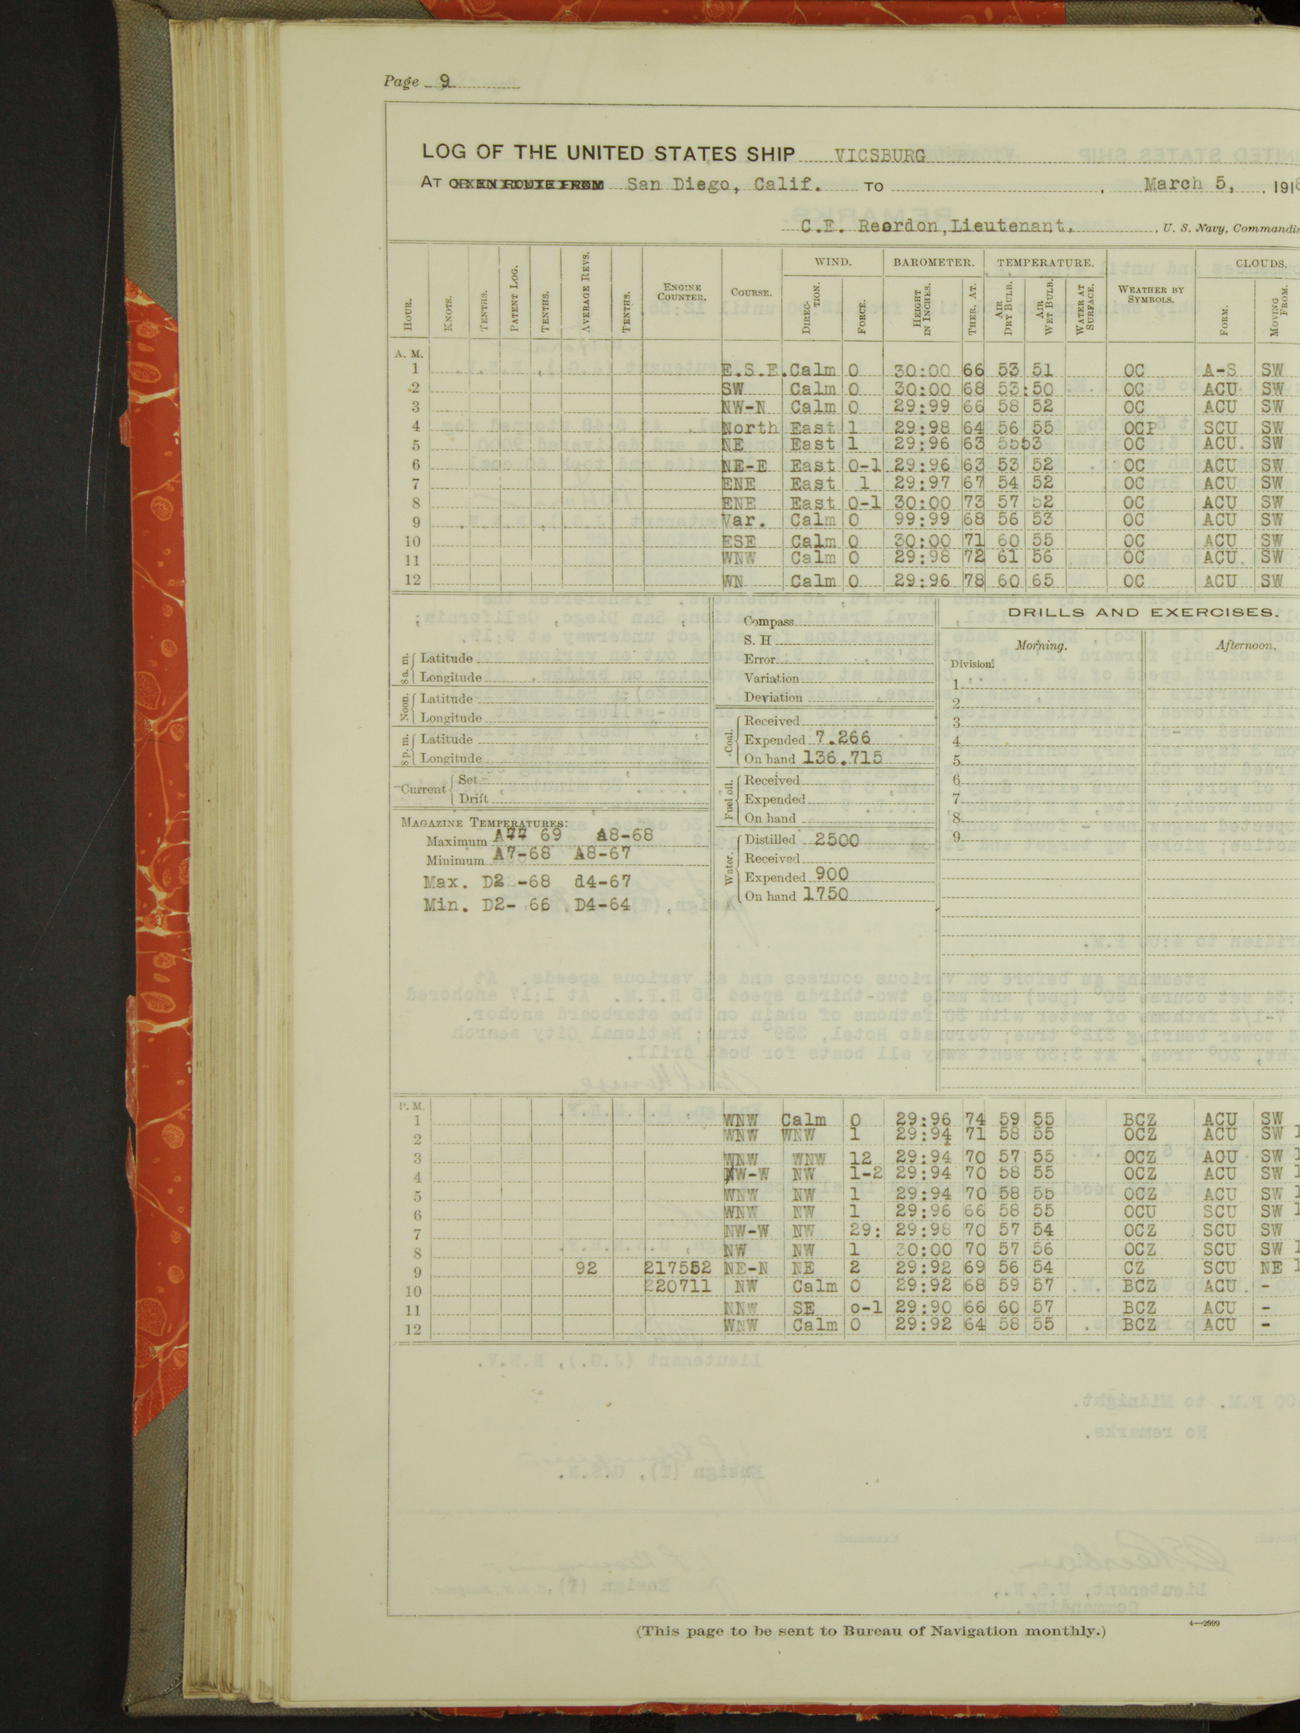 Page 9
LOG OF THE UNITED STATES SHIP VICSBURG
AT OR EN ROUTE FROM San Diego, Calif. TO , March 5, , 1918
C.E. Reordon, Lieutenant, , U. S. Navy, Commandi
WIND. BAROMETER. TEMPERATURE. CLOUDS.
HOUR. KNOTS. TENTHS. PATENT LOG. TENTHS. AVERAGE REVS. TENTHS. ENGINE COUNTER. COURSE. DIREC-TION. FORCE. HEIGHT IN INCHES. THER. AT. AIR DRY BULB. AIR WET BULB. WATER AT SURFACE. WEATHER BY SYMBOLS. FORM. MOVING FROM.
A. M.
1 E.S.E. Calm 0 30:00 66 53 51 OC A-S SW
2 SW Calm 0 30:00 68 53:50 OC ACU SW
3 NW-N Calm 0 29:99 66 58 52 OC ACU SW
4 North East 1 29:98 64 56 55 OCP SCU SW
5 NE East 1 29:96 63 OC ACU. SW
6 NE-E East 0-1 29:96 63 53 52 OC ACU SW
7 ENE East 1 29:97 67 54 52 OC ACU SW
8 ENE East 0-1 30:00 73 57 52 OC ACU SW
9 Var. Calm 0 99:99 68 56 53 OC ACU SW
10 ESE Calm 0 30:00 71 60 55 OC ACU SW
11 WNW Calm 0 29:98 72 61 56 OC ACU. SW
12 WN Calm 0 29:96 78 60 65 OC ACU SW
8 a. m. Latitude
Longitude
Noon. Latitude
Longitude
8 p. m. Latitude
Longitude
Current Set
Drift
MAGAZINE TEMPERATURES:
Maximum A77 69 A8-68
Minimum A7-68 A8-67
Max. D2 -68 d4-67
Min. D2- 66 D4-64
Compass
S. H
Error
Variation
Deviation
Coal. Received
Expended 7.266
On hand 136.715
Fuel oil. Received
Expended
On hand
Water. Distilled 2500
Received
Expended 900
On hand 1750
DRILLS AND EXERCISES.
Morning. Afternoon.
Division:
1
2
3
4
5
6
7
8
9
P. M.
1 WNW Calm 0 29:96 74 59 55 BCZ ACU SW
2 WNW WNW 1 29:94 71 58 55 OCZ ACU SW 1
3 WNW WNW 12 29:94 70 57 55 OCZ AOU SW 1
4 NW-W NW 1-2 29:94 70 58 55 OCZ ACU SW 1
5 WNW NW 1 29:94 70 58 55 OCZ ACU SW 1
6 WNW NW 1 29:96 66 58 55 OCU SCU SW 1
7 NW-W NW 29: 29:98 70 57 54 OCZ SCU SW
8 NW NW 1 30:00 70 57 56 OCZ SCU SW 1
9 92 217552 NE-N NE 2 29:92 69 56 54 CZ SCU NE 1
10 220711 NW Calm 0 29:92 68 59 57 BCZ ACU. -
11 NNW SE o-1 29:90 66 60 57 BCZ ACU -
12 WNW Calm 0 29:92 64 58 55 BCZ ACU -
(This page to be sent to Bureau of Navigation monthly.)
4—2599